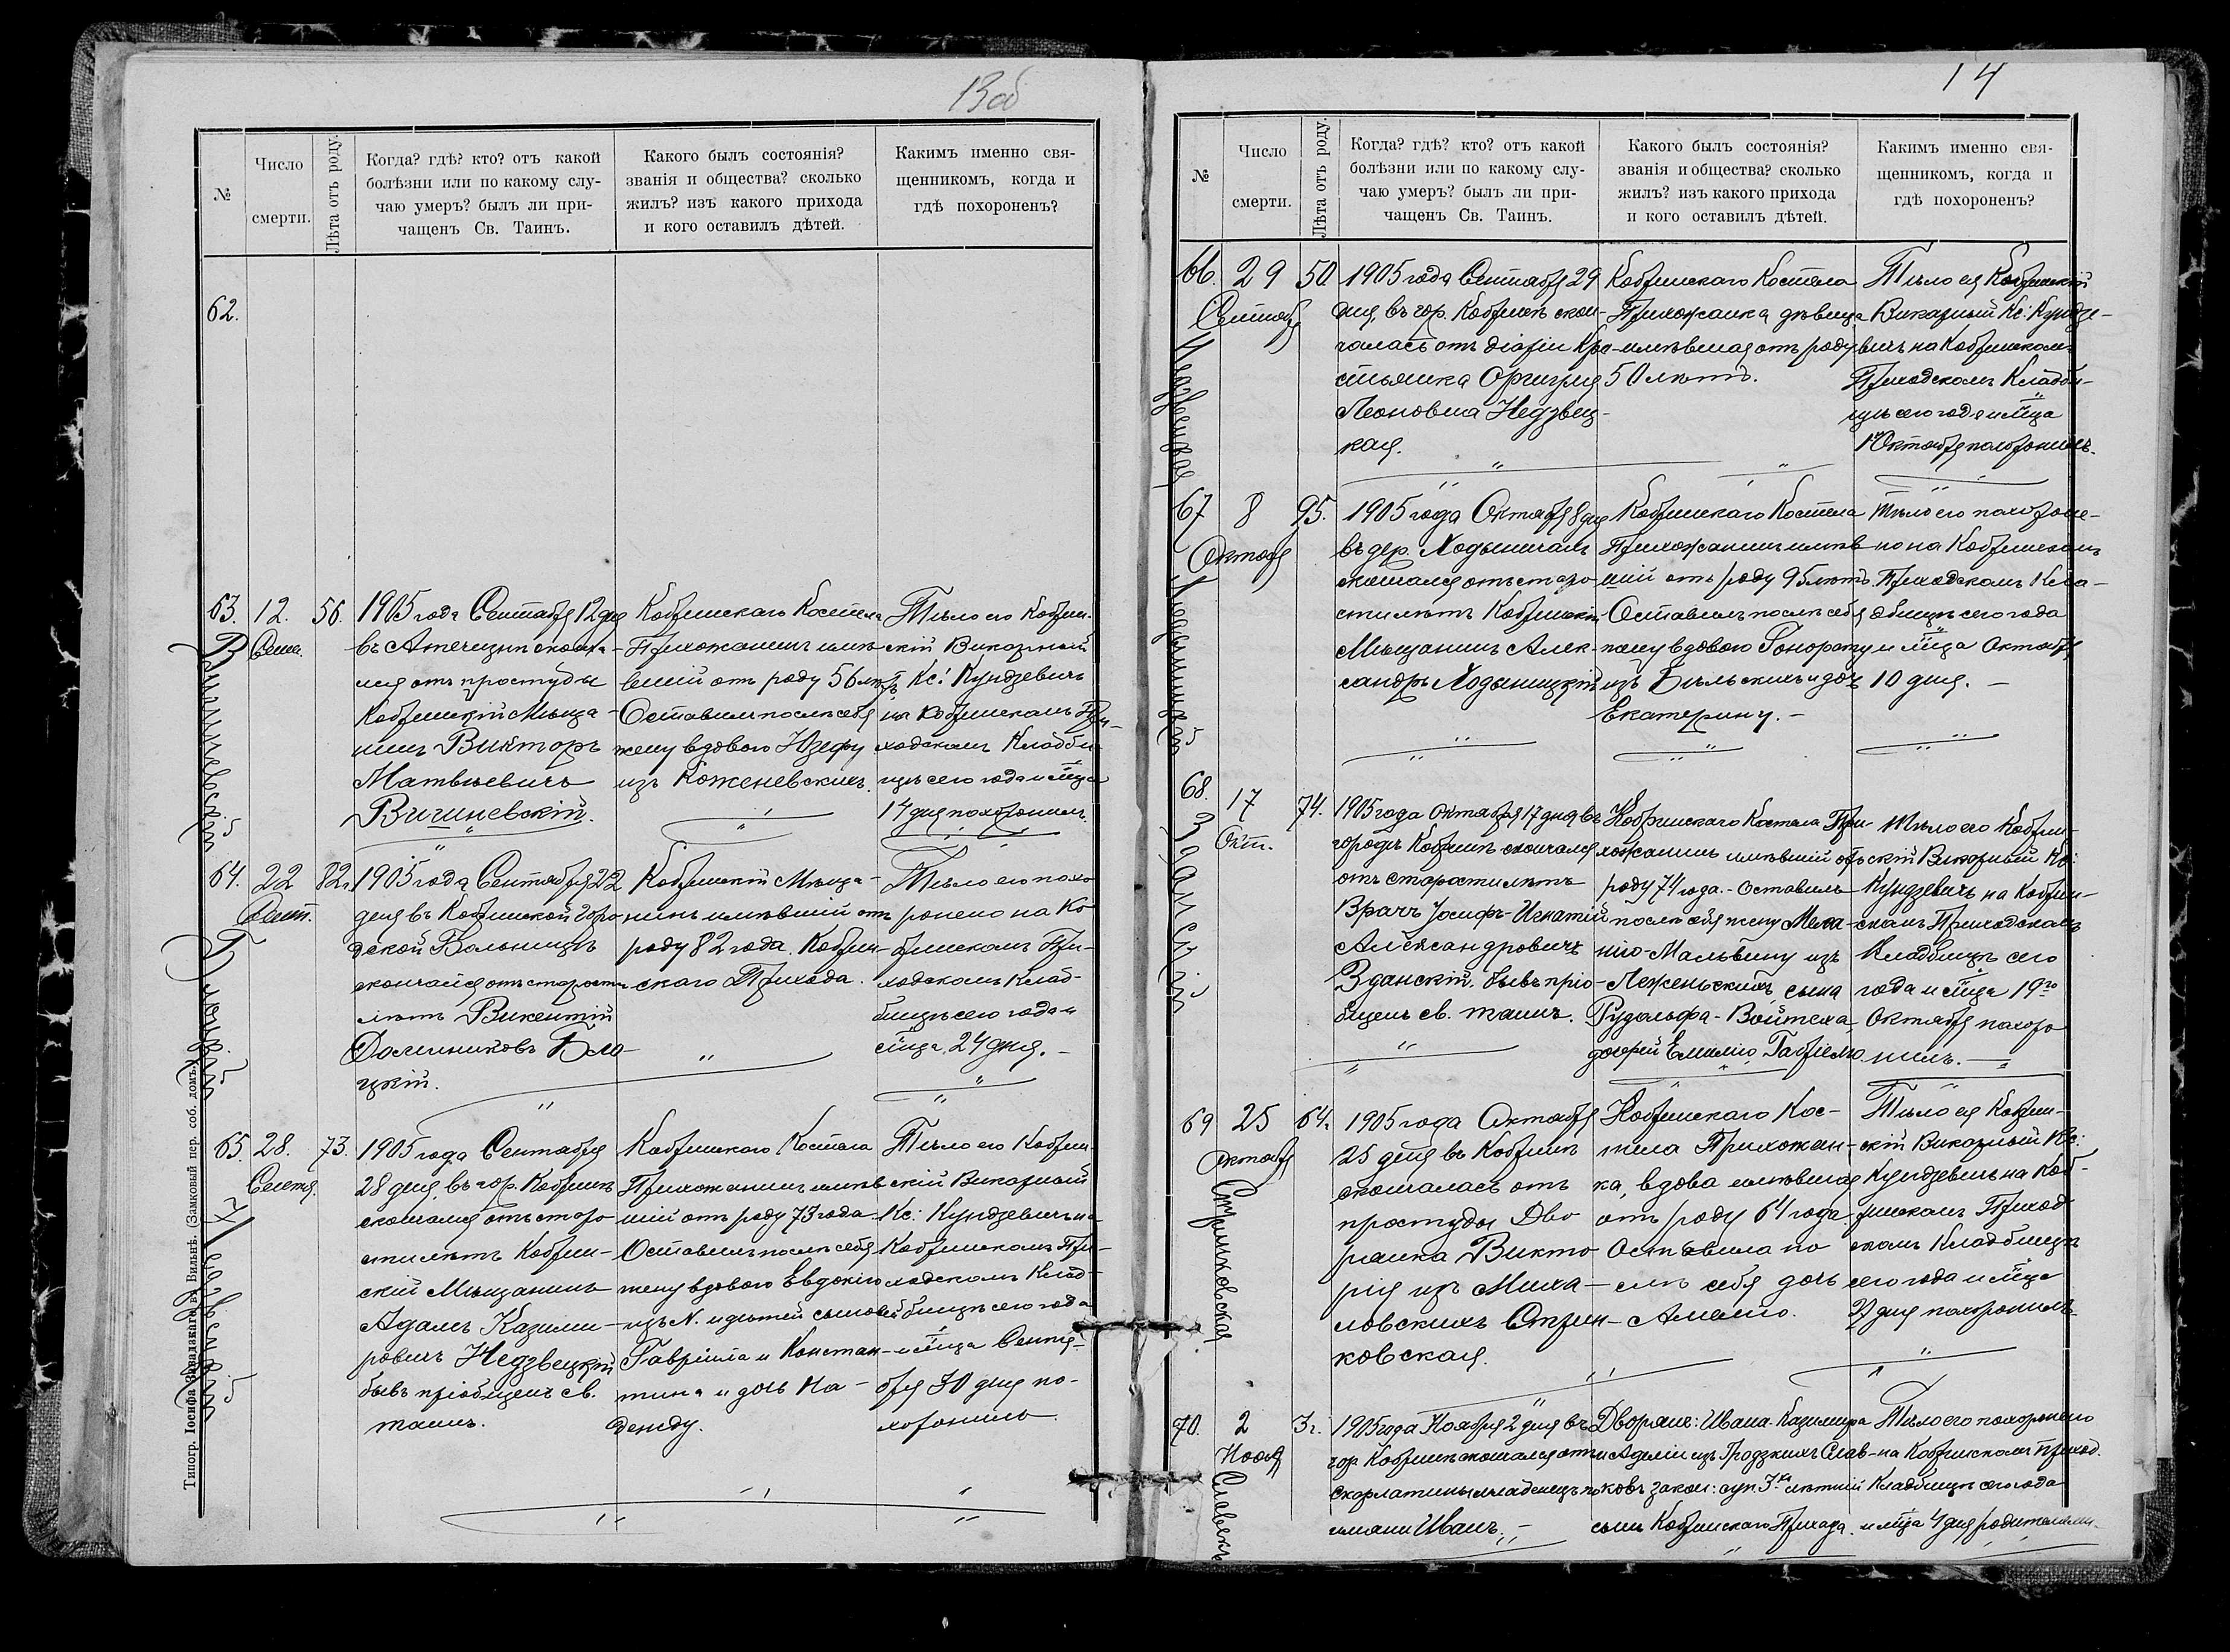 13об
№
Число
смерти.
Лѣта отъ роду.
Когда? гдѣ? кто? отъ какой
болѣзни или по какому слу-
чаю умеръ? былъ ли при-
чащенъ Св. Таинъ.
Какого былъ состоянія?
званія и общества? сколько
жилъ? изъ какого прихода
и кого оставилъ дѣтей.
Какимъ именно свя-
щенникомъ, когда и
гдѣ похороненъ?
62.
63.
Вичиневскій
12.
Сент.
56.
1905 года Сентября 12 дня
въ скончал-
ся отъ простуды
Кобринскій Мѣща-
нинъ Викторъ
Матвѣевичъ
Вичиневскій.
Кобринскаго Костела
Прихожанинъ имѣ-
вшій отъ роду 56 лѣтъ
Оставилъ послѣ себя
жену вдовою Юзефу
изъ Коженевскихъ.
Тѣло его Кобрин-
скій Викарный
Кс: Кундзевичъ
на Кобринскомъ При-
ходскомъ Кладби-
щѣ сего года и м-ца
14 дня похоронилъ.
64.
22
Сент.
82 г.
1905 года Сентября 22
дня въ Кобринской Горо-
дской Больницѣ
скончался отъ старости
лѣтъ Викентій
Доминиковъ Бло-
цкій.
Кобринскій Мѣща-
нинъ имѣвшій отъ
роду 82 года. Кобрин-
скаго Прихода.
Тѣло его похо-
ронено на Ко-
бринскомъ При-
ходскомъ Клад-
бищѣ сего года и
м-ца 24 дня.
65.
Недзвецкій
28.
Сентя.
73.
1905 года Сентября
28 дня, въ гор. Кобринѣ
скончался отъ старо-
сти лѣтъ Кобрин-
скій Мѣщанинъ
Адамъ Казими-
ровичъ Недзвецкій
бывъ пріобщенъ св.
таинъ.
Кобринскаго Костела
Прихожанинъ имѣв-
шій отъ роду 73 года
Оставилъ послѣ себя
жену вдовою Евдокію
изъ N. и дѣтей сыновей
Гавріила и Констан-
тина и дочь На-
дежду.
Тѣло его Кобрин-
скій Викарный
Кс: Кундзевичъ на
Кобринскомъ При-
ходскомъ Клад-
бищѣ сего года
и м-ца Сентя-
бря 30 дня по-
хоронилъ.
Типогр. Іосифа Завадзкаго въ Вильнѣ. (Замковый пер. соб. домъ.)
14
№
Число
смерти.
Лѣта отъ роду.
Когда? гдѣ? кто? отъ какой
болѣзни или по какому слу-
чаю умеръ? былъ ли при-
чащенъ Св. Таинъ.
Какого былъ состоянія?
званія и общества? сколько
жилъ? изъ какого прихода
и кого оставилъ дѣтей.
Какимъ именно свя-
щенникомъ, когда и
гдѣ похороненъ?
66.
Недзвецкая
29
Сентября
50
1905 года Сентября 29
дня, въ гор. Кобринѣ скон-
чалась отъ Кре-
стьянка
Леоновна Недзвец-
кая.
Кобринскаго Костела
Прихожанка дѣвица
имѣвшая отъ роду
50 лѣтъ.
Тѣло ея Кобринскій
Викарный Кс: Кундзе-
вичъ на Кобринскомъ
Приходскомъ Кладби-
щѣ сего года и м-ца
1 Октября похоронилъ.
67
Ходыницкій
8
Октября
95.
1905 года Октября 8 дня
въ дер. Ходыничахъ
скончался отъ старо-
сти лѣтъ Кобринскій
Мѣщанинъ Алек-
сандръ Ходыницкій
Кобринскаго Костела
Прихожанинъ имѣв-
шій отъ роду 95 лѣтъ.
Оставилъ послѣ себя
жену вдовою Гонорату
изъ Бѣльскихъ и дочь
Екатерину.
Тѣло его похороне-
но на Кобринскомъ
Приходскомъ Кла-
дбищѣ сего года
и м-ца Октября
10 дня.
68.
Зданскій
17
Окт.
74.
1905 года Октября 17 дня въ
городѣ Кобринѣ скончался
отъ старости лѣтъ
Врачъ Іосифъ-Игнатій
Александровичъ
Зданскій, бывъ пріо-
бщенъ св. таинъ.
Кобринскаго Костела При-
хожанинъ имѣвшій отъ
роду 74 года. - Оставилъ
послѣ себя жену Мела-
нію-Мальвину изъ
Леженьскихъ, сына
Рудольфа-Войтеха,
дочерей Емилію, Габріелю.
Тѣло его Кобрин-
скій Викарный Кс:
Кундзевичъ на Кобрин-
скомъ Приходскомъ
Кладбищѣ сего
года и м-ца 19го
Октября похоро-
нилъ.
69
Стржиковская
25
Октября
64.
1905 года Октября
25 дня въ Кобринѣ
скончалась отъ
простуды Дво-
рянка Викто-
рія изъ Миха-
ловскихъ Стржи-
ковская.
Кобринскаго Кос-
тела Прихожан-
ка, вдова имѣвшая
отъ роду 64 года.
Оставила по-
слѣ себя дочь
Амелію.
Тѣло ея Кобрин-
скій Викарный Кс:
Кундзевичъ на Коб-
ринскомъ Приход-
скомъ Кладбищѣ
сего года и м-ца
27 дня похоронилъ
70.
Славекъ
2
Нояб
3 г.
1905 года Ноября 2 дня въ
гор. Кобринѣ скончался отъ
Скарлатины младенецъ по
имени Иванъ.
Дворянъ: Ивана-Казимира
и Аделіи изъ Гродзкихъ Слав-
ковъ закон: суп. 3хъ лѣтній
сынъ Кобринскаго Прихода.
Тѣло его похоронено
на Кобринскомъ Приход.
Кладбищѣ сего года
и м-ца 4 дня родителями.